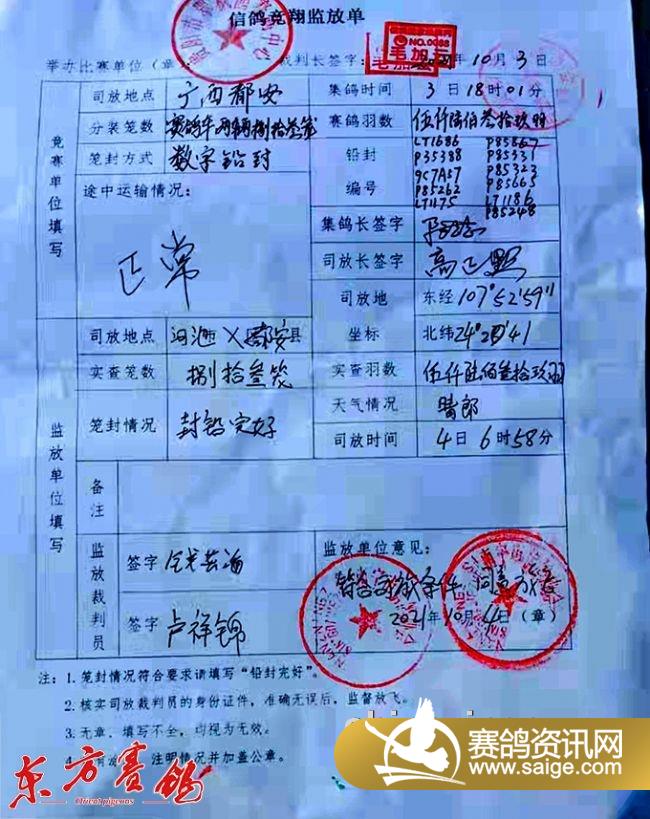 信鸽竞翔监放单
举办比赛单位（章
裁判长签字：毛加云
NO.0088
毛加云
10月3日
竞赛单位填写
司放地点 广西都安 集鸽时间 3日18时01分
分装笼数 赛鸽车两辆捌拾叁笼 赛鸽羽数 伍仟陆佰叁拾玖羽
笼封方式 数字铅封 铅封编号
LT1686 P85867
P35388 P85331
9C7A37 P85323
P85262 P85665
LT1175 LT1186
P85248
途中运输情况：
正常
集鸽长签字
司放长签字 高正
司放地 东经107°52'59"
坐标 北纬24°20'41
监放单位填写
司放地点 河池市 都安县
实查笼数 捌拾叁笼 实查羽数 伍仟陆佰叁拾玖羽
笼封情况 封铅完好 天气情况 晴郎
司放时间 4日6时58分
备注
监放裁判员
签字
签字 卢祥锦
监放单位意见：
符合 条件 同意放飞
2021年10月4日（章）
注：1.笼封情况符合要求请填写“铅封完好”。
2.核实司放裁判员的身份证件，准确无误后，监督放飞。
3.无章、填写不全，均视为无效。
4. 注明情况并加盖公章。
东方赛鸽
Orient pigeons
赛鸽资讯网
www.saige.com